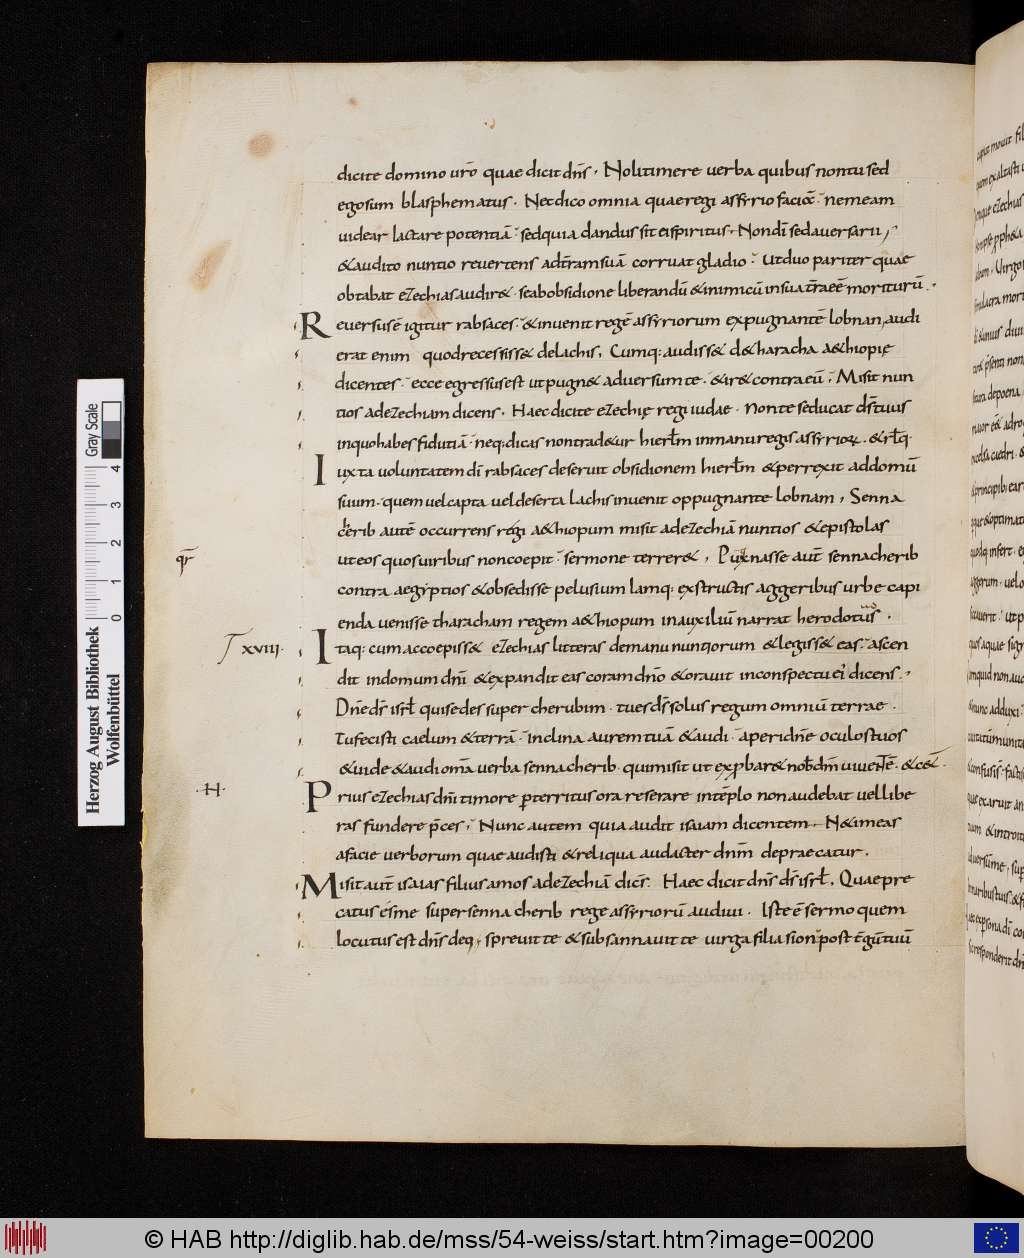 dicite domino uro quae dicit dns. Noli timere uerba quibus non tu sed
ego sum blasphematus. Nec dico omnia quae regi assyrio facio; ne meam
uidear iactare potentia; sed quia dandus sit ei spiritus, non di sed aduersarii,
& audito nuntio reuertens ad tram sua corruat gladio; ut duo pariter quae
obtabat ezechias audir&. se ab obsidione liberandu & inimicu in sua trae ee moriturum.
Reuersus e igitur rabsaces. & inuenit rege assyriorum expugnante lobnan, audi
erat enim quod recessiss& de lachis, Cumq: audiss& de tharacha a&hiopie
dicentes. ecce egressus est ut pugn& aduersum te. & ir& contra eu; Misit nun
tios ad ezechiam dicens, Haec dicite ezechie regi iudae. Non te seducat ds tuus
in quo habes fidutia. neq: dicas non trad&ur hierlm in manu regis assyrior. & rlq.
Iuxta uoluntatem di rabsaces deseruit obsidionem hierlm & perrexit ad domu
suum. quem uel capta uel deserta lachis inuenit oppugnante lobnam, Senna
cherib aute occurrens regi a&hiopum misit ad ezechia nuntios & epistolas
ut eos quos uiribus non coepit; sermone terrer&, Pugnasse aut sennacherib
qr
contra aegyptios & obsedisse pelusium Iamq: exstructis aggeribus urbe capi
enda uenisse tharacham regem a&hiopum in auxiliu narrat herodotus.
XVIII. Itaq: cum accoepiss& ezechias litteras de manu nuntiorum & legiss& eas; ascen
dit in domum dni & expandit eas coram dno & orauit in conspectu ei dicens.
Dne ds isrl qui sedes super cherubim. tu es ds solus regum omniu terrae.
Tu fecisti caelum & terra. inclina aurem tua & audi. aperi dne oculos tuos
& uide & audi oma uerba sennacherib. qui misit ut exprbar& nob dm
H.
Prius ezechias dni timore perterritus ora reserare in templo non audebat uel libe
ras fundere pces, Nunc autem quia audit isaiam dicentem. N& imeas
a facie uerborum quae audisti & reliqua audacter dnm depraecatur.
Misit aut isaias filius amos ad ezechia dics: Haec dicit dns ds isrl, Quae pre
catus es me super sennacherib rege assyrioru audiui. Iste e sermo quem
locutus est dns de eo, spreuit te & subsannauit te uirga filia sion post
Gray Scale
0 1 2 3 4
Herzog August Bibliothek
Wolfenbüttel
© HAB http://diglib.hab.de/mss/54-weiss/start.htm?image=00200